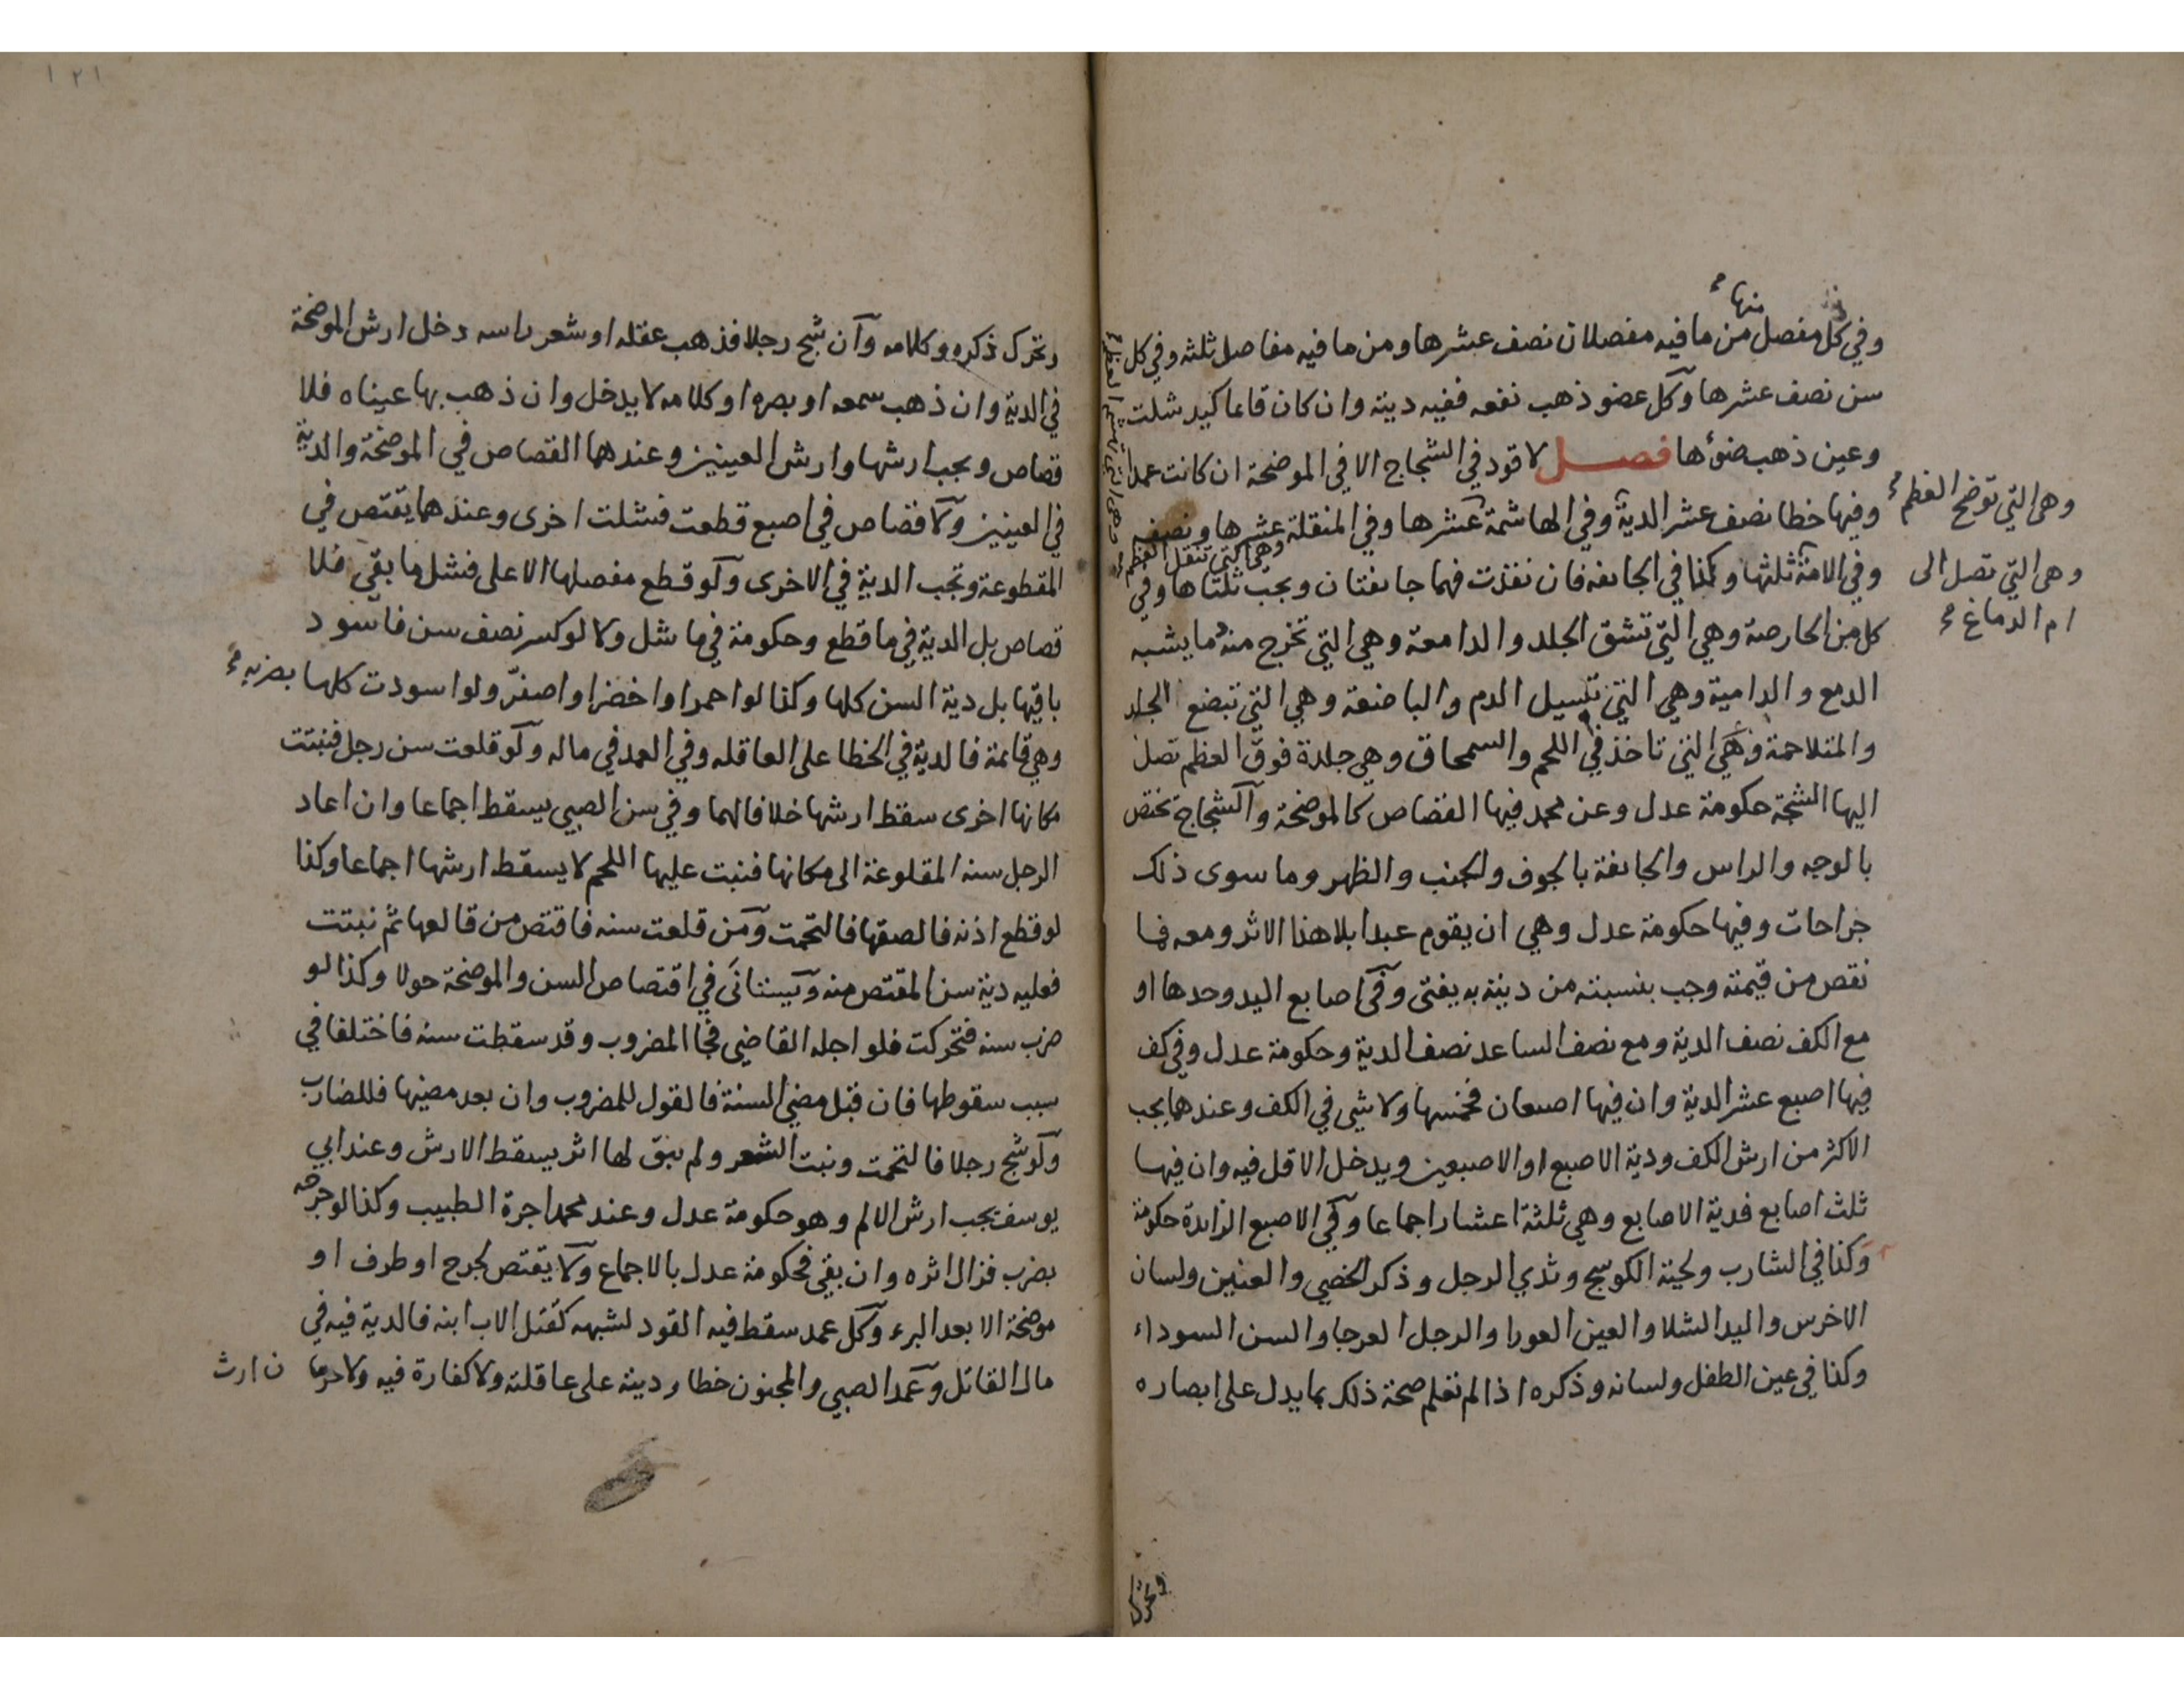 وفي كل مفصل من ما فيه مفصلان نصف عشرها ومن ما فيه مفاصل ثلثه وفي كل
منها
سن نصف عشرها وكل عضو ذهب نفعه ففيه ديته وان كان قائما كيد شلت
وعين ذهب ضوءها فصل لا قود في الشجاج الا في الموضحة ان كانت عمدا
وهى التي توضح العظم
وفيها خطا نصف عشر الدية وفي الهاشمة عشرها وفي المنقلة عشرها ونصفه
وهى التي تهشم العظم
وهي التي تنقل العظم
وفي الامة ثلثها وكذا في الجائفه فان نفذت فهما جائفتان ويجب ثلثاها وفي
وهى التي تصل الى
ام الدماغ
كل من الحارصة وهي التي تشق الجلد والدامعة وهي التي تخرج منه ما يشبه
الدمع والدامية وهي التي تسيل الدم والباضعة وهي التي تبضع الجلد
والمتلاحمة وهي التي تاخذ في اللحم والسمحاق وهي جلدة فوق العظم تصل
اليها الشجة حكومة عدل وعن محمد فيها القصاص كالموضحة والشجاج تختص
بالوجه والراس والجائفة بالجوف والجنب والظهر وما سوى ذلك
جراحات وفيها حكومة عدل وهي ان يقوم عبدا بلا هذا الاثر ومعه فما
نقص من قيمته وجب بنسبته من ديته به يفتى وفي اصابع اليد وحدها او
مع الكف نصف الدية ومع نصف الساعد نصف الدية وحكومة عدل وفي كف
فيها اصبع عشر الدية وان فيها اصبعان فخمسها ولا شي في الكف وعندهما يجب
الاكثر من ارش الكف ودية الاصبع او الاصبعين ويدخل الاقل فيه وان فيها
ثلث اصابع فدية الاصابع وهي ثلثة اعشار اجماعا وفي الاصبع الزائدة حكومة
وكذا في الشارب ولحية الكوسج وثدي الرجل وذكر الخصي والعنين ولسان
الاخرس واليد الشلا والعين العورا والرجل العرجا والسن السوداء
وكذا في عين الطفل ولسانه وذكره اذا لم تعلم صحة ذلك بما يدل على ابصاره
وتحرك
١٢١
وتحرك ذكره وكلامه وان شج رجلا فذهب عقله او شعر راسه دخل ارش الموضحة
في الدية وان ذهب سمعه او بصره او كلامه لا يدخل وان ذهب بها عيناه فلا
قصاص ويجب ارشها وارش العينين وعندهما القصاص في الموضحة والدية
في العينين ولا قصاص في اصبع قطعت فشلت اخرى وعندهما يقتص في
المقطوعة وتجب الدية في الاخرى ولو قطع مفصلها الاعلى فشل ما بقي فلا
قصاص بل الدية في ما قطع وحكومة في ما شل ولا لو كسر نصف سن فاسود
باقيها بل دية السن كلها وكذا لو احمر او اخضر او اصفر ولو اسودت كلها بضربه
وهي قائمة فالدية في الخطا على العاقله وفي العمد في ماله ولو قلعت سن رجل فنبتت
مكانها اخرى سقط ارشها خلافا لهما وفي سن الصبي يسقط اجماعا وان اعاد
الرجل سنه المقلوعة الى مكانها فنبت عليها اللحم لا يسقط ارشها اجماعا وكذا
لو قطع اذنه فالصقها فالتحمت ومن قلعت سنه فاقتص من قالعها ثم نبتت
فعليه دية سن المقتص منه ويستانى في اقتصاص السن والموضحة حولا وكذا لو
ضرب سنه فتحركت فلو اجله القاضي فجا المضروب وقد سقطت سنه فاختلفا في
سبب سقوطها فان قبل مضي السنة فالقول للمضروب وان بعد مضيها فللضارب
ولو شج رجلا فالتحمت ونبت الشعر ولم يبق لها اثر يسقط الارش وعند ابي
يوسف يجب ارش الالم وهو حكومة عدل وعند محمد اجرة الطبيب وكذا لو جرحه
بضرب فزال اثره وان بقي فحكومة عدل بالاجماع ولا يقتص لجرح او طرف او
موضحة الا بعد البرء وكل عمد سقط فيه القود لشبهه كقتل الاب ابنه فالدية فيه في
مال القاتل وعمد الصبي والمجنون خطا وديته على عاقلته ولا كفارة فيه ولا حرما ن ارث